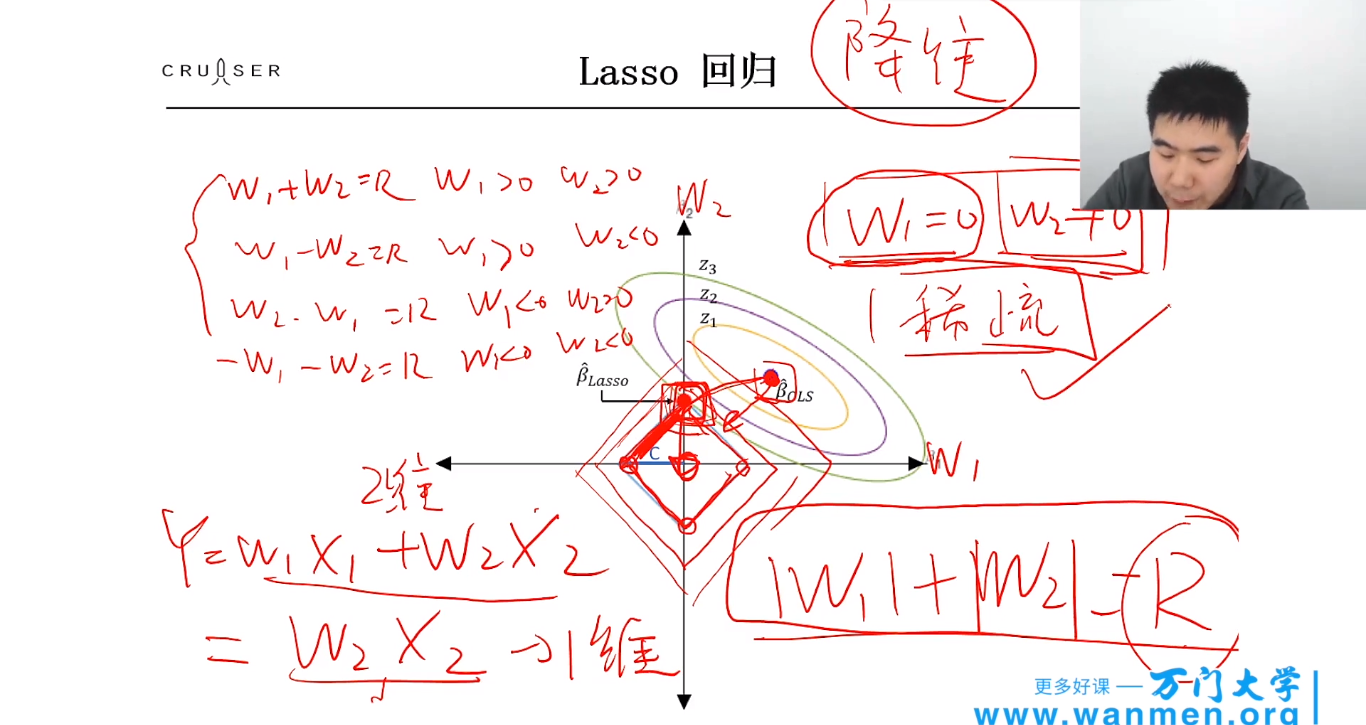 降维
CRUISER
Lasso 回归
W₁+W₂=R W₁>0 W₂>0
W₁-W₂=R W₁>0 W₂<0
W₂-W₁=R W₁<0 W₂>0
-W₁-W₂=R W₁<0 W₂<0
W₂
W₁=0 W₂≠0
稀疏
z₃
z₂
z₁
β̂Lasso
β̂OLS
C
W₁
2维
Y=W₁X₁+W₂X₂
=W₂X₂→1维
|W₁|+|W₂|=R
更多好课 — 万门大学
www.wanmen.org